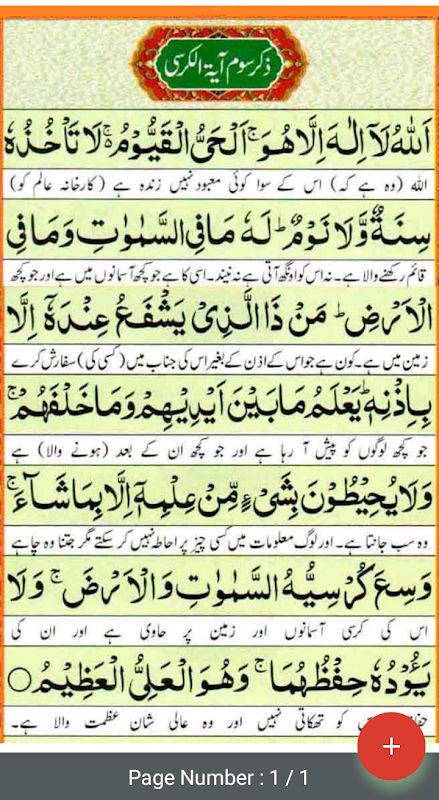 ذکر سوم آیۃ الکرسی
اَللّٰهُ لَاۤ اِلٰهَ اِلَّا هُوَ ۚ اَلْحَیُّ الْقَیُّوْمُ ۚ لَا تَاْخُذُهٗ
اللہ (وہ ہے کہ) اس کے سوا کوئی معبود نہیں زندہ ہے (کارخانہ عالم کو)
سِنَةٌ وَّلَا نَوْمٌ ؕ لَهٗ مَا فِی السَّمٰوٰتِ وَمَا فِی
قائم رکھنے والا ہے۔ نہ اس کو اونگھ آتی ہے نہ نیند۔ اسی کا ہے جو کچھ آسمانوں میں ہے اور جو کچھ
الْاَرْضِ ؕ مَنْ ذَا الَّذِیْ یَشْفَعُ عِنْدَهٗۤ اِلَّا
زمین میں ہے۔ کون ہے جو اس کے اذن کے بغیر اس کی جناب میں (کسی کی) سفارش کرے
بِاِذْنِهٖ ؕ یَعْلَمُ مَا بَیْنَ اَیْدِیْهِمْ وَمَا خَلْفَهُمْ ۚ
جو کچھ لوگوں کو پیش آ رہا ہے اور جو کچھ ان کے بعد (ہونے والا) ہے
وَلَا یُحِیْطُوْنَ بِشَیْءٍ مِّنْ عِلْمِهٖۤ اِلَّا بِمَا شَآءَ ۚ
وہ سب جانتا ہے۔ اور لوگ معلومات میں کسی چیز پر احاطہ نہیں کر سکتے مگر جتنا وہ چاہے
وَسِعَ كُرْسِیُّهُ السَّمٰوٰتِ وَالْاَرْضَ ۚ وَلَا
اس کی کرسی آسمانوں اور زمین پر حاوی ہے اور ان کی
یَـُٔوْدُهٗ حِفْظُهُمَا ۚ وَهُوَ الْعَلِیُّ الْعَظِیْمُ ○
کو تھکاتی نہیں اور وہ عالی شان عظمت والا ہے۔
Page Number : 1 / 1